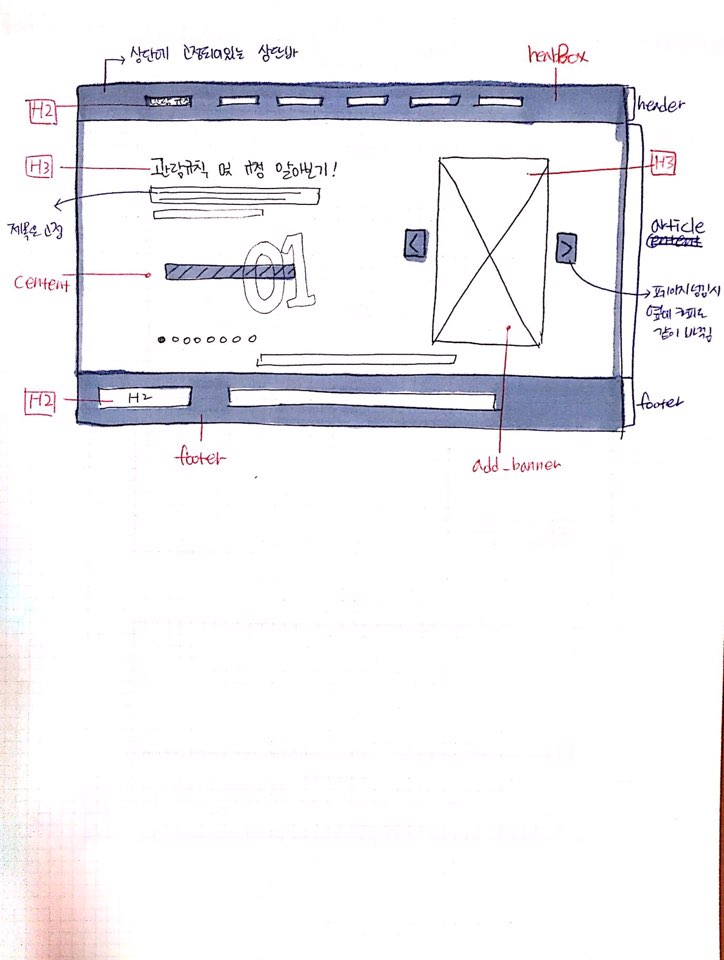 상단에 고정되어있는 상단바
headBox
H2
관람규정
header
H3
관람규칙 및 규정 알아보기!
H3
제목은 고정
article
content
< >
Content
01
페이지넘김시
옆에 카피도
같이 바뀜
H2
H2
footer
footer
add_banner